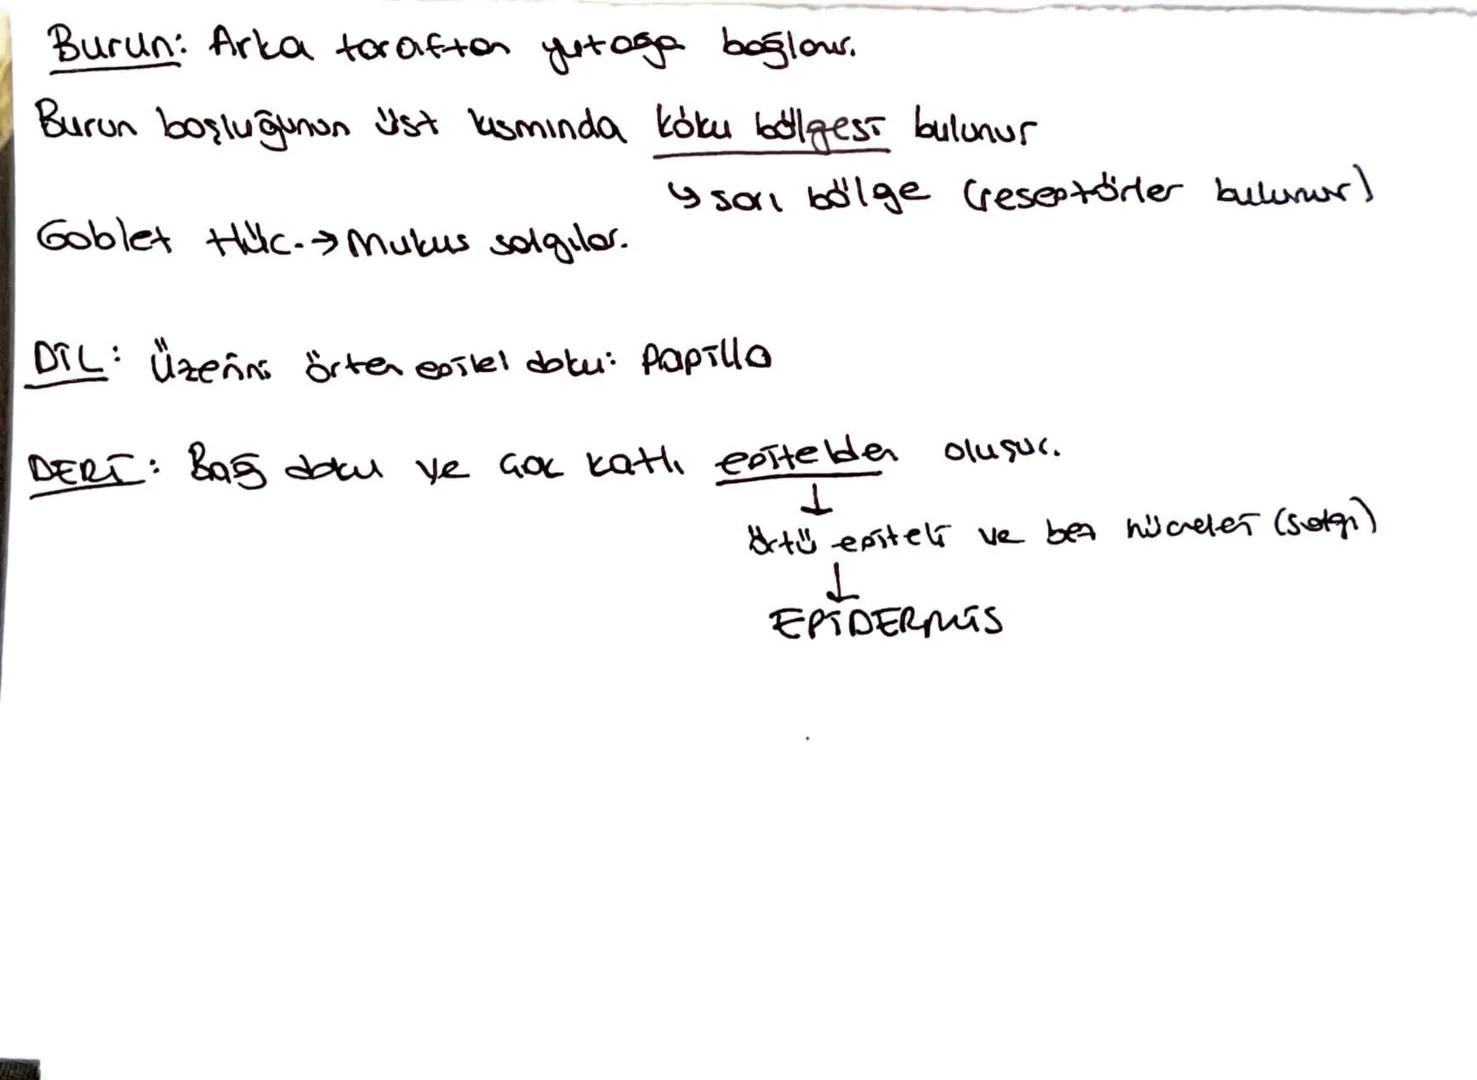 Burun: Arka taraftan yutağa bağlanır.
Burun boşluğunun üst kısmında koku bölgesi bulunur
↳ sarı bölge (reseptörler bulunur)
Goblet Hüc. → Mukus salgılar.
DİL: Üzerini örten epitel doku: Papilla
DERİ: Bağ doku ve çok katlı epitelden oluşur.
↓
örtü epiteli ve bez hücreleri (salgı)
↓
EPİDERMİS